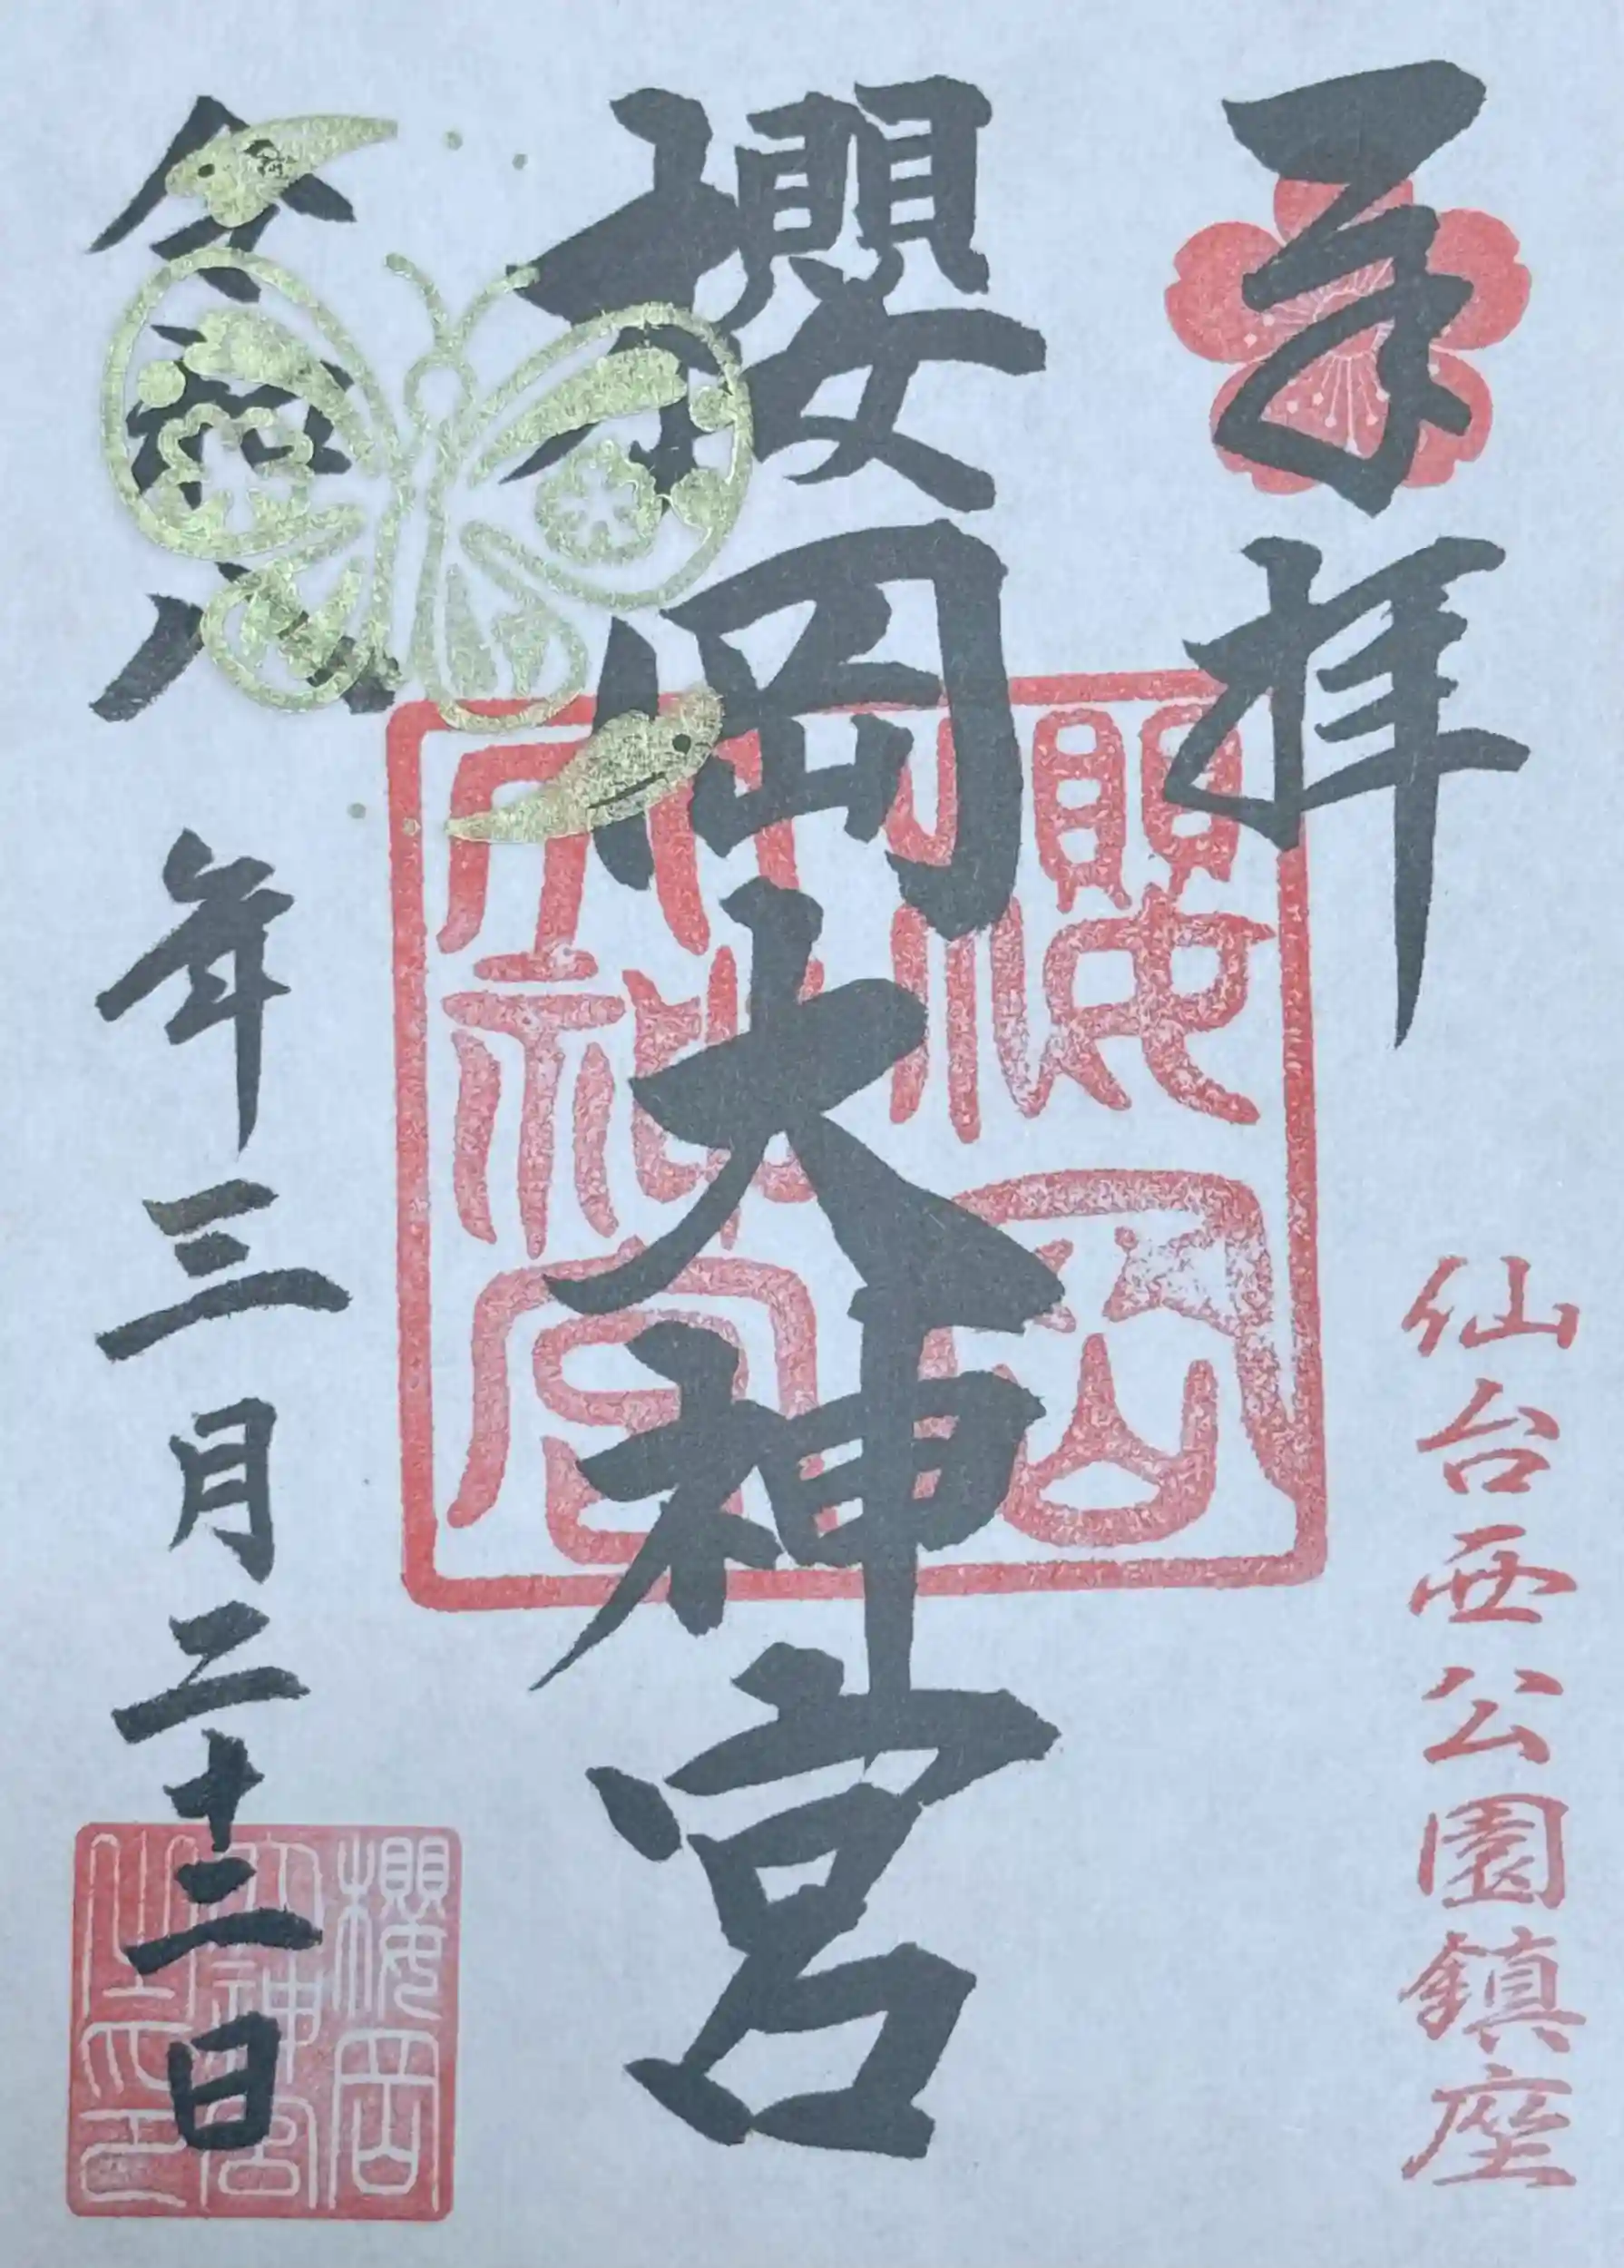 奉拝
仙台西公園鎮座
櫻岡大神宮
櫻岡
大神宮
令和八年三月二十二日
櫻岡
大神宮
之印